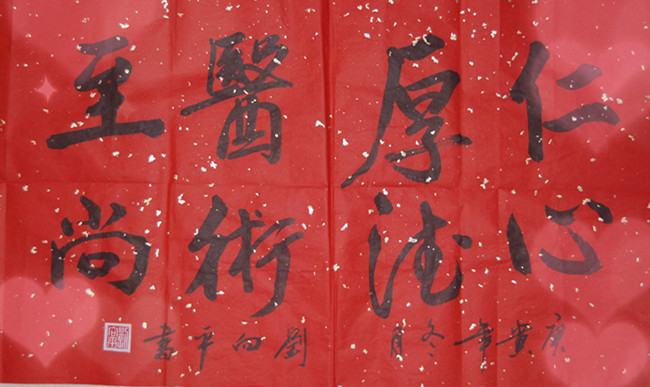 仁心
厚德
醫術
至尚
庚寅年冬月
劉向平書